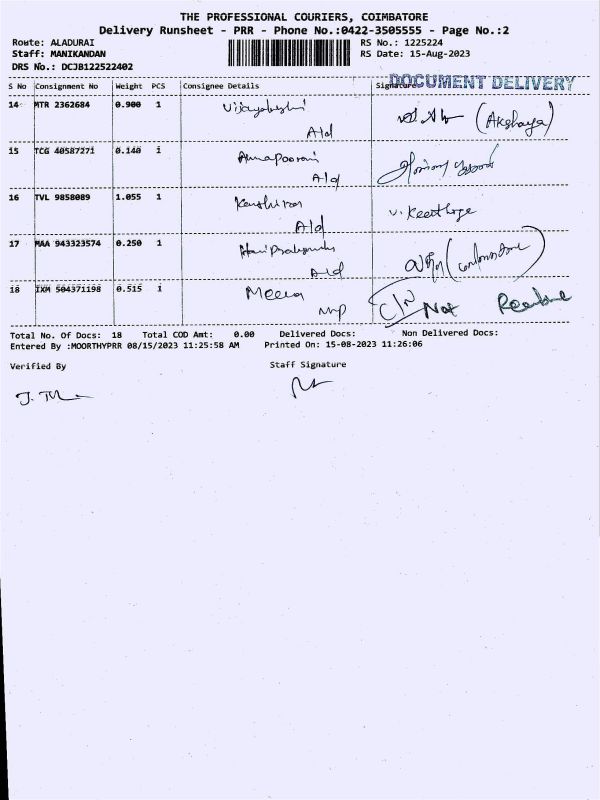 THE PROFESSIONAL COURIERS, COIMBATORE
Delivery Runsheet - PRR - Phone No.:0422-3505555 - Page No.:2
Route: ALADURAI RS No.: 1225224
Staff: MANIKANDAN RS Date: 15-Aug-2023
DRS No.: DCJB122522402
DOCUMENT DELIVERY
S No Consignment No Weight PCS Consignee Details Signature
14 MTR 2362684 0.900 1 (Akshaya)
Ald
15 TCG 40587271 0.140 1 Annapoorani
Ald
16 TVL 9858089 1.055 1 V. Keerthige
Ald
17 MAA 943323574 0.250 1
Ald
18 IXM 504371198 0.515 1 Meera C/N Not
Total No. Of Docs: 18 Total COD Amt: 0.00 Delivered Docs: Non Delivered Docs:
Entered By :MOORTHYPRR 08/15/2023 11:25:58 AM Printed On: 15-08-2023 11:26:06
Verified By Staff Signature